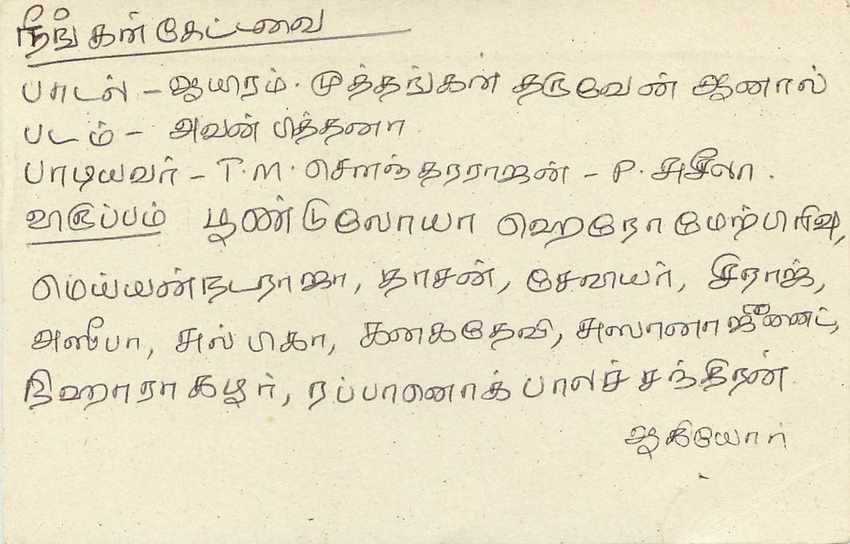 நீங்கள் கேட்டவை
பாடல் - ஆயிரம். முத்தங்கள் தருவேன் ஆனால்
படம் - அவன் பித்தனா
பாடியவர் - T.M. சௌந்தரராஜன் - P. சுசீலா.
விருப்பம் பூண்டுலோயா ஹெரோ மேற்பிரிவு,
மெய்யன்நடராஜா, தாசன், சேவியர், சிராஜ்,
அஸீபா, சல்பிகா, கனகதேவி, சுலானா ஜீனைட்,
நிஹாரா கபூர், ரப்பானொக் பாலச்சந்திரன்
ஆகியோர்